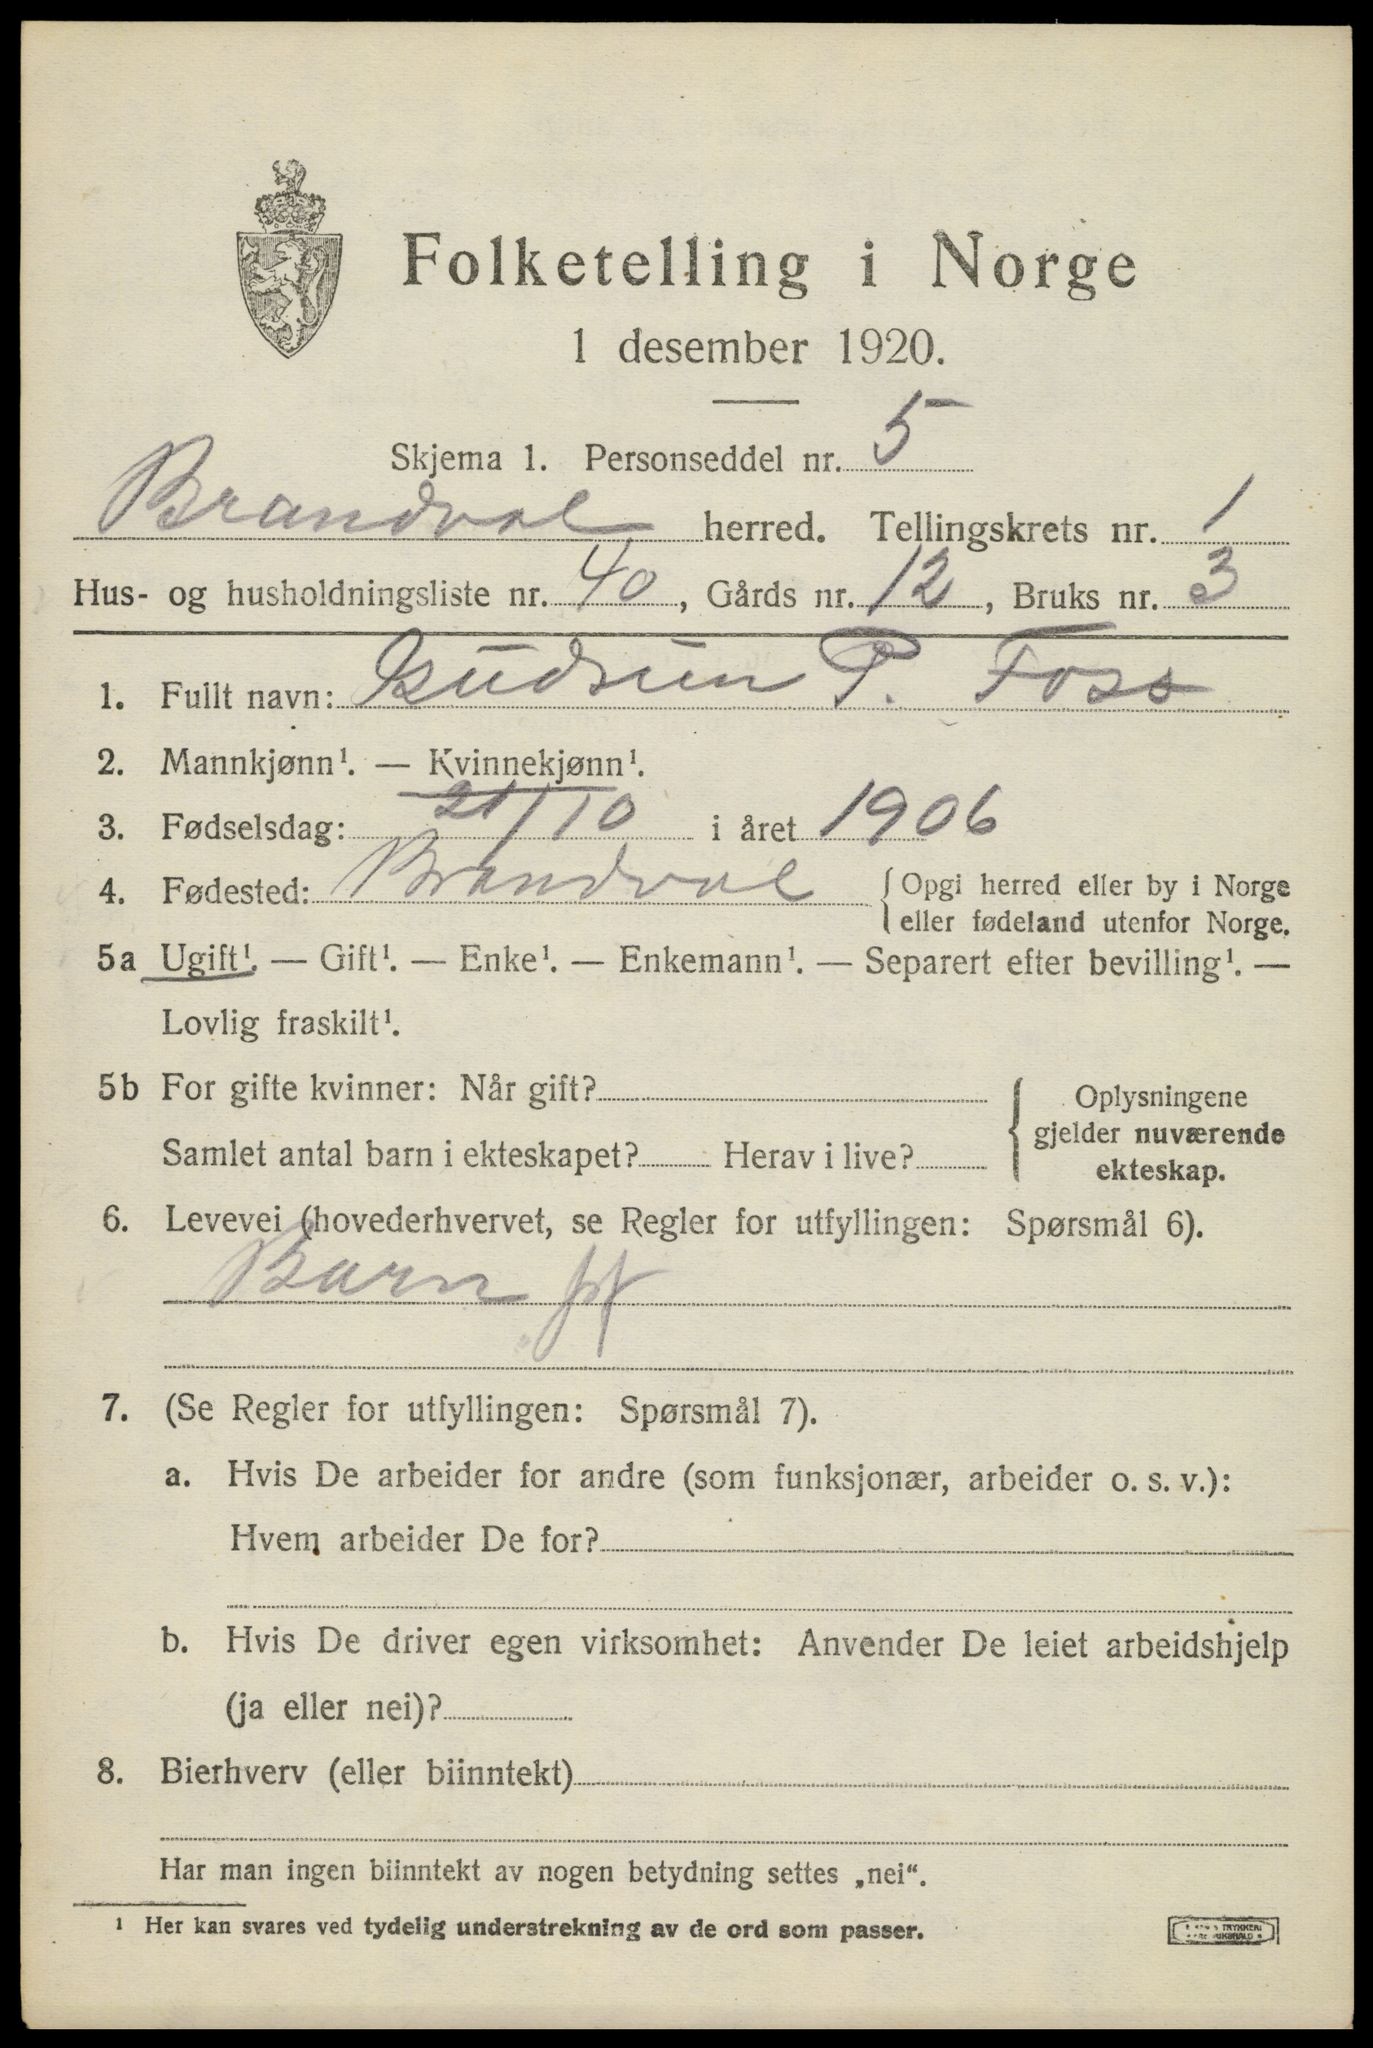 Folketelling i Norge
1 desember 1920.
Skjema 1. Personseddel nr. 5
Brandval herred. Tellingskrets nr. 1
Hus- og husholdningsliste nr. 40, Gårds nr. 12, Bruks nr. 3
1. Fullt navn: Gudrun P. Foss
2. Mannkjønn¹. — Kvinnekjønn¹.
3. Fødselsdag: 21/10 i året 1906
4. Fødested: Brandval { Opgi herred eller by i Norge
eller fødeland utenfor Norge.
5a Ugift¹. — Gift¹. — Enke¹. — Enkemann¹. — Separert efter bevilling¹. —
Lovlig fraskilt¹.
5b For gifte kvinner: Når gift?
Samlet antal barn i ekteskapet? Herav i live?
{ Oplysningene
gjelder nuværende
ekteskap.
6. Levevei (hovederhvervet, se Regler for utfyllingen: Spørsmål 6).
Barn
7. (Se Regler for utfyllingen: Spørsmål 7).
a. Hvis De arbeider for andre (som funksjonær, arbeider o. s. v.):
Hvem arbeider De for?
b. Hvis De driver egen virksomhet: Anvender De leiet arbeidshjelp
(ja eller nei)?
8. Bierhverv (eller biinntekt)
Har man ingen biinntekt av nogen betydning settes „nei“.
¹ Her kan svares ved tydelig understrekning av de ord som passer.